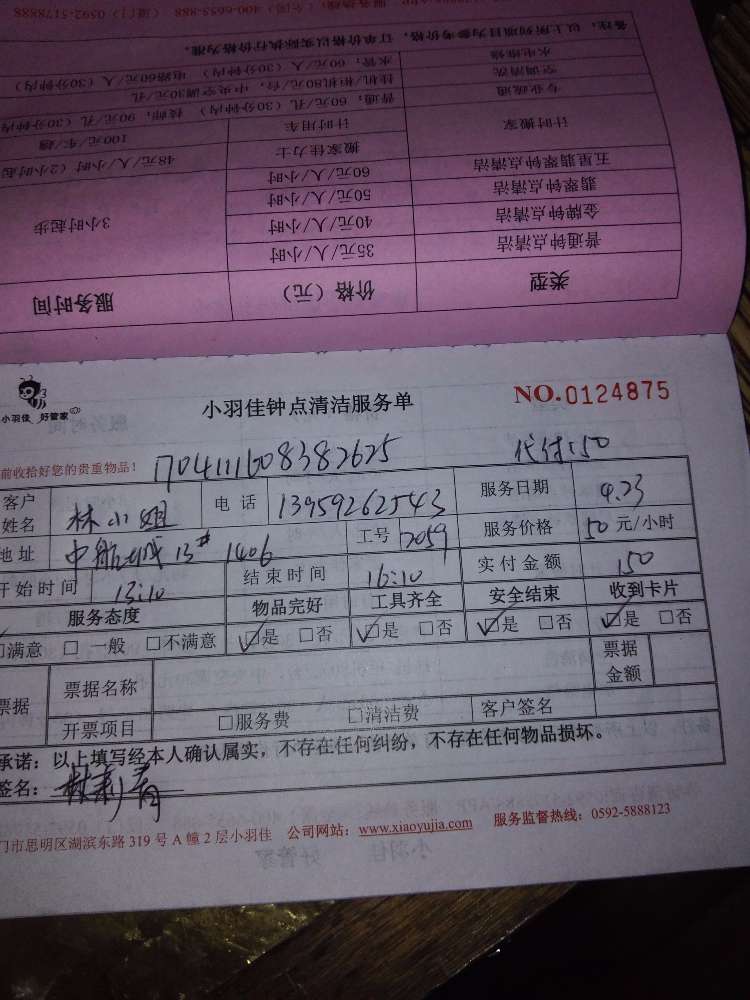 服务热线：(全国) 400-6655-888 (厦门) 0592-5178888
备注：以上所列项目为参考价格，订单价格以实际执行价格为准。
水电维修 水管：60元/人 (30分钟内) 电路60元/人 (30分钟内)
空调清洗 挂机/柜机80元/台，中央空调30元/孔
专业疏通 普通：60元/孔 (30分钟内) 技师：90元/孔 (30分钟内)
计时搬家 计时用车 100元/车/趟
搬家佳力士 48元/人/小时 (2小时起
五星翡翠钟点清洁 60元/人/小时
翡翠钟点清洁 50元/人/小时
金牌钟点清洁 40元/人/小时 3小时起步
普通钟点清洁 35元/人/小时
类型 价格（元） 服务时间
小羽佳 好管家
小羽佳钟点清洁服务单
NO.0124875
前收拾好您的贵重物品！ 1704111608382625 代付：50
客户姓名 林小姐 电话 13959262543 服务日期 4.23
地址 中航城13# 1406 工号 2059 服务价格 50元/小时
开始时间 13:10 结束时间 16:10 实付金额 150
服务态度 物品完好 工具齐全 安全结束 收到卡片
☑满意 □一般 □不满意 ☑是 □否 ☑是 □否 ☑是 □否 ☑是 □否
票据 票据名称 票据金额
开票项目 □服务费 □清洁费 客户签名
承诺：以上填写经本人确认属实，不存在任何纠纷，不存在任何物品损坏。
签名：
门市思明区湖滨东路 319 号 A 幢 2 层小羽佳 公司网站：www.xiaoyujia.com 服务监督热线：0592-5888123